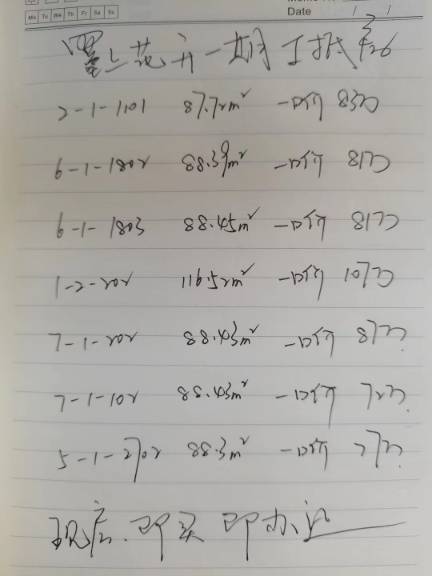 Date / /
Mo Tu We Th Fr Sa Su
墅上花开一期工抵
2-1-1101 87.72m² 一口价 83万
6-1-1802 88.39m² 一口价 81万
6-1-1803 88.45m² 一口价 81万
1-2-202 116.52m² 一口价 107万
7-1-202 88.43m² 一口价 78万
7-1-102 88.43m² 一口价 72万
5-1-2702 88.3m² 一口价 77万
现房.即买即办证